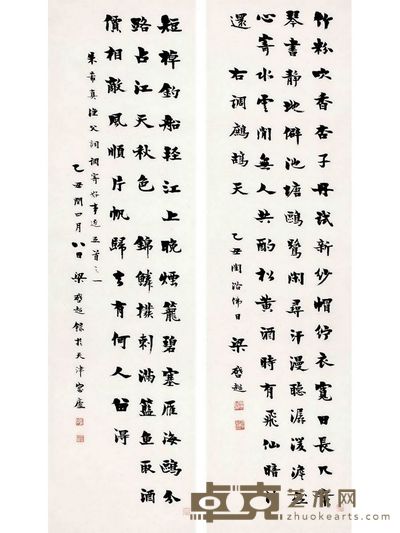 竹粉吹香杏子丹試新紗帽紵衣寬日長几案
琴書靜地僻池塘鷗鷺閑尋汗漫聽潺湲澹然
心寄水雲閒無人共酌松黃酒時有飛仙暗往
還 右調鷓鴣天 乙丑閏浴佛日 梁啟超
短棹釣船輕江上晚煙籠碧塞雁海鷗分
路占江天秋色 錦鱗撥刺滿籃魚取酒
價相敵風順片帆歸去有何人留得
朱希真漁父詞調寄好事近五首之一
乙丑閏四月八日梁啟超錄於天津寓廬
卓克艺术网
www.zhuokearts.com